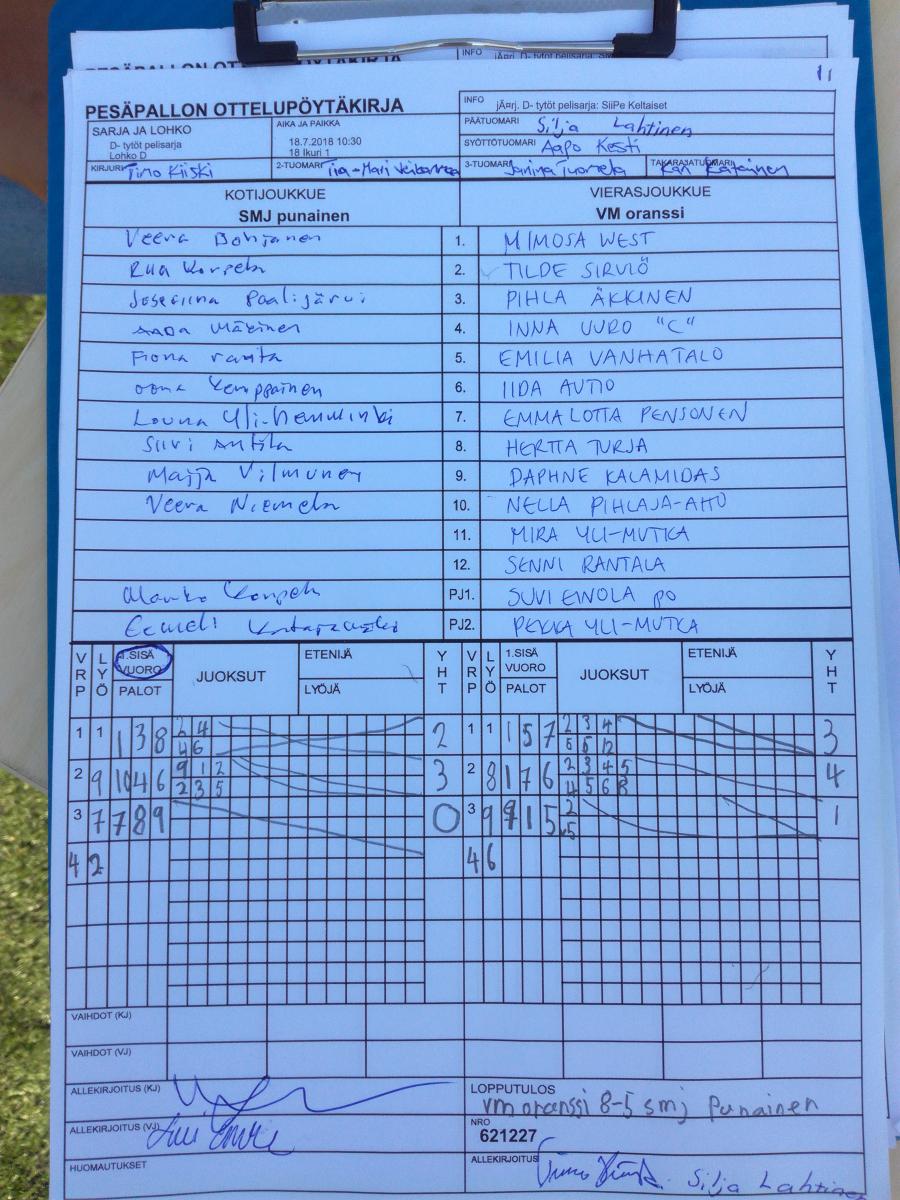 INFO
jÃ¤rj. D- tytöt pelisarja:
11
PESÄPALLON OTTELUPÖYTÄKIRJA
INFO jÃ¤rj. D- tytöt pelisarja: SiiPe Keltaiset
SARJA JA LOHKO
D- tytöt pelisarja
Lohko D
AIKA JA PAIKKA
18.7.2018 10:30
18 Ikuri 1
PÄÄTUOMARI Silja Lahtinen
SYÖTTÖTUOMARI Aapo Kosti
KIRJURI Timo Kiiski
2-TUOMARI Tiia-Mari
3-TUOMARI Janina Tuomela
TAKARAJATUOMARI Kari
KOTIJOUKKUE
SMJ punainen
VIERASJOUKKUE
VM oranssi
Veera Bohjanen 1. MIMOSA WEST
Riia Korpela 2. TILDE SIRVIÖ
Josefiina Paalijärvi 3. PIHLA ÄKKINEN
Aada Mäkinen 4. INNA UURO "C"
Fiona ranta 5. EMILIA VANHATALO
oona Kemppainen 6. IIDA AUTIO
Louna Yli-hemminki 7. EMMALOTTA PENSONEN
Siivi Anttila 8. HERTTA TURJA
Maija Vilmunen 9. DAPHNE KALAMIDAS
Veera Niemela 10. NELLA PIHLAJA-AHO
11. MIRA YLI-MUTKA
12. SENNI RANTALA
Marko Korpela PJ1. SUVI EINOLA PO
Eemeli PJ2. PEKKA YLI-MUTKA
VRP LYÖ 1.SISÄ VUORO PALOT JUOKSUT ETENIJÄ LYÖJÄ YHT VRP LYÖ 1.SISÄ VUORO PALOT JUOKSUT ETENIJÄ LYÖJÄ YHT
1 1 1 3 8 2 4 2 1 1 1 5 7 2 3 4 3
4 6 5 6 12
2 9 10 4 6 9 1 2 3 2 8 1 7 6 2 3 4 5 4
2 3 5 4 5 6 8
3 7 7 8 9 0 3 9 9 1 5 2 1
5
4 2 4 6
VAIHDOT (KJ)
VAIHDOT (VJ)
ALLEKIRJOITUS (KJ)
LOPPUTULOS
vm oranssi 8-5 smj Punainen
ALLEKIRJOITUS (VJ)
NRO
621227
HUOMAUTUKSET
ALLEKIRJOITUS Silja Lahtinen